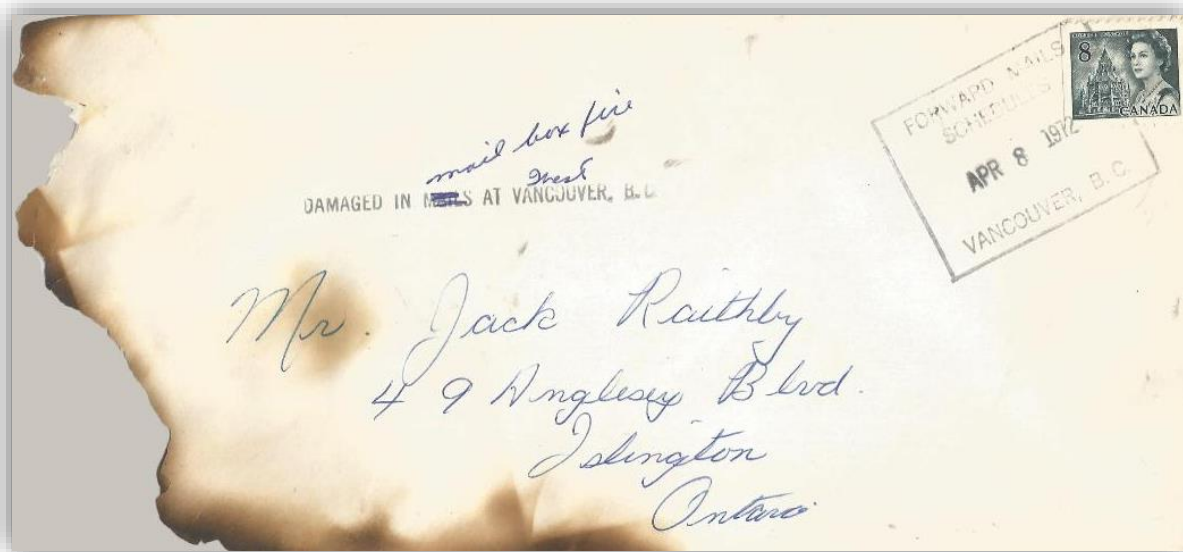 8
CANADA
FORWARD MAILS
SCHEDULES
APR 8 1972
VANCOUVER, B. C.
mail box fire
West
DAMAGED IN MAILS AT VANCOUVER, B.C.
Mr. Jack Raithby
49 Anglesey Blvd.
Islington
Ontario